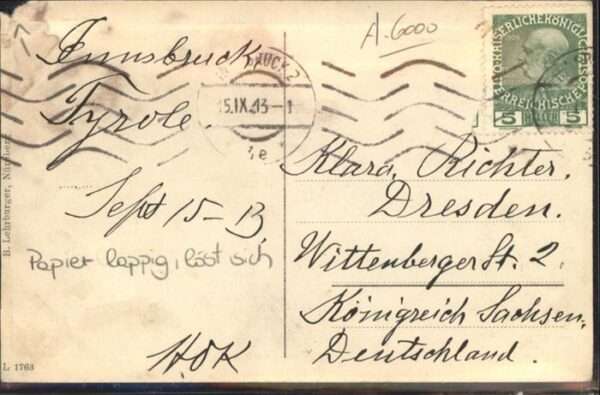 A. 6000
Innsbruck
Tyrole.
Sept 15-13,
Papier lappig, löst sich
HOK
INNSBRUCK 2
15.IX.13-1
KAISERLICHE KÖNIGLICHE
ÖSTERREICHISCHE POST
5 HELLER 5
Klara Richter.
Dresden.
Wittenberger St. 2
Königreich Sachsen,
Deutschland.
B. Lehrburger, Nürnberg
L 1763